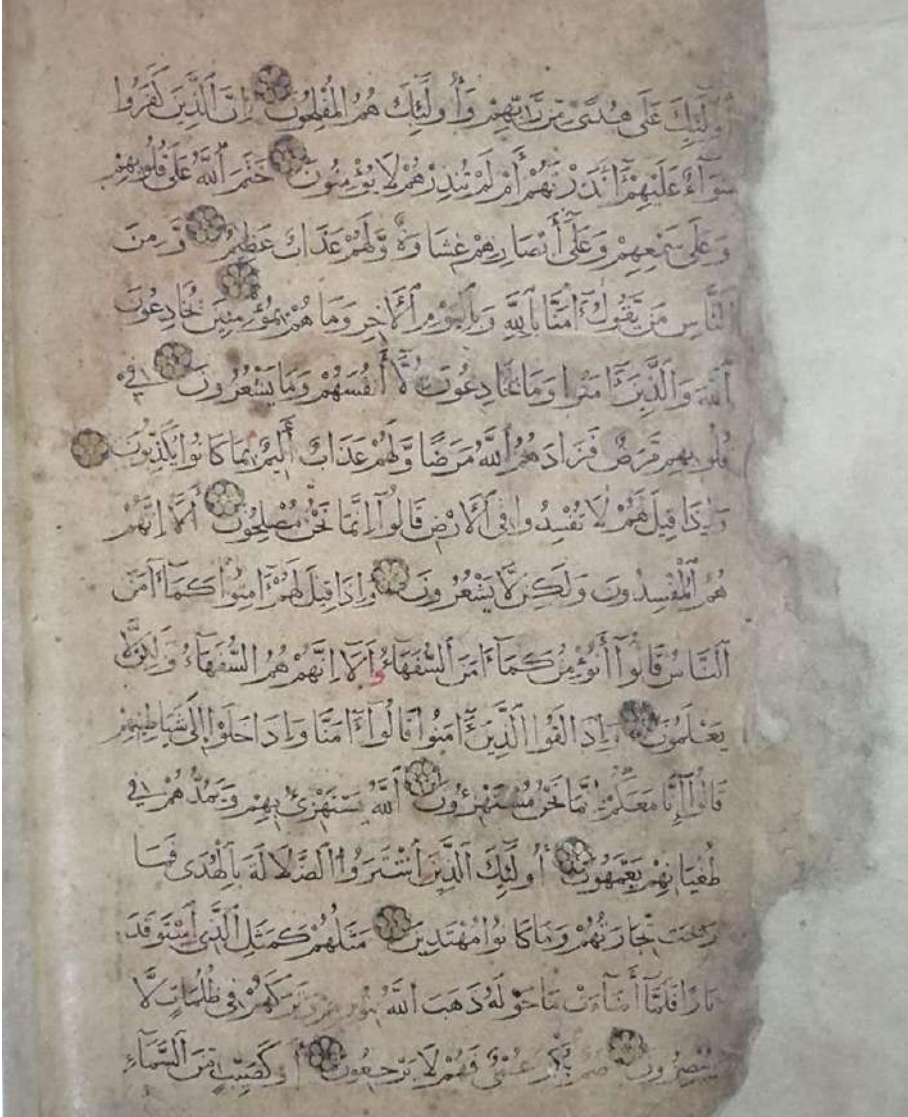 أُولَٰئِكَ عَلَى هُدًى مِّن رَّبِّهِمْ وَأُولَٰئِكَ هُمُ الْمُفْلِحُونَ إِنَّ الَّذِينَ كَفَرُوا
سَوَآءٌ عَلَيْهِمْ ءَأَنذَرْتَهُمْ أَمْ لَمْ تُنذِرْهُمْ لَا يُؤْمِنُونَ خَتَمَ اللَّهُ عَلَى قُلُوبِهِمْ
وَعَلَى سَمْعِهِمْ وَعَلَىٰٓ أَبْصَارِهِمْ غِشَاوَةٌ وَّلَهُمْ عَذَابٌ عَظِيمٌ وَّمِنَ
النَّاسِ مَن يَقُولُ آمَنَّا بِاللَّهِ وَبِالْيَوْمِ الْأَخِرِ وَمَا هُمْ بِمُؤْمِنِينَ يُخَادِعُونَ
اللَّهَ وَالَّذِينَ ءَامَنُوا وَمَا يُخَادِعُونَ إِلَّآ أَنفُسَهُمْ وَمَا يَشْعُرُونَ فِي
قُلُوبِهِم مَّرَضٌ فَزَادَهُمُ اللَّهُ مَرَضًا وَّلَهُمْ عَذَابٌ أَلِيمٌ بِمَا كَانُوا يُكَذِّبُونَ
وَإِذَا قِيلَ لَهُمْ لَا تُفْسِدُوا فِي الْأَرْضِ قَالُوٓا إِنَّمَا نَحْنُ مُصْلِحُونَ أَلَآ إِنَّهُمْ
هُمُ الْمُفْسِدُونَ وَلَكِن لَّا يَشْعُرُونَ وَإِذَا قِيلَ لَهُمْ ءَامِنُوا كَمَآ ءَامَنَ
النَّاسُ قَالُوٓا أَنُؤْمِنُ كَمَآ ءَامَنَ السُّفَهَآءُ أَلَآ إِنَّهُمْ هُمُ السُّفَهَآءُ وَلَكِن لَّا
يَعْلَمُونَ وَإِذَا لَقُوا الَّذِينَ ءَامَنُوا قَالُوٓا ءَامَنَّا وَإِذَا خَلَوْا إِلَى شَيَاطِينِهِمْ
قَالُوٓا إِنَّا مَعَكُمْ إِنَّمَا نَحْنُ مُسْتَهْزِءُونَ اللَّهُ يَسْتَهْزِئُ بِهِمْ وَيَمُدُّهُمْ فِي
طُغْيَانِهِمْ يَعْمَهُونَ أُولَٰئِكَ الَّذِينَ اشْتَرَوُا الضَّلَالَةَ بِالْهُدَى فَمَا
رَبِحَت تِّجَارَتُهُمْ وَمَا كَانُوا مُهْتَدِينَ مَثَلُهُمْ كَمَثَلِ الَّذِي اسْتَوْقَدَ
نَارًا فَلَمَّآ أَضَآءَتْ مَا حَوْلَهُ ذَهَبَ اللَّهُ بِنُورِهِمْ وَتَرَكَهُمْ فِي ظُلُمَاتٍ لَّا
يُبْصِرُونَ صُمٌّ بُكْمٌ عُمْيٌ فَهُمْ لَا يَرْجِعُونَ أَوْ كَصَيِّبٍ مِّنَ السَّمَآءِ